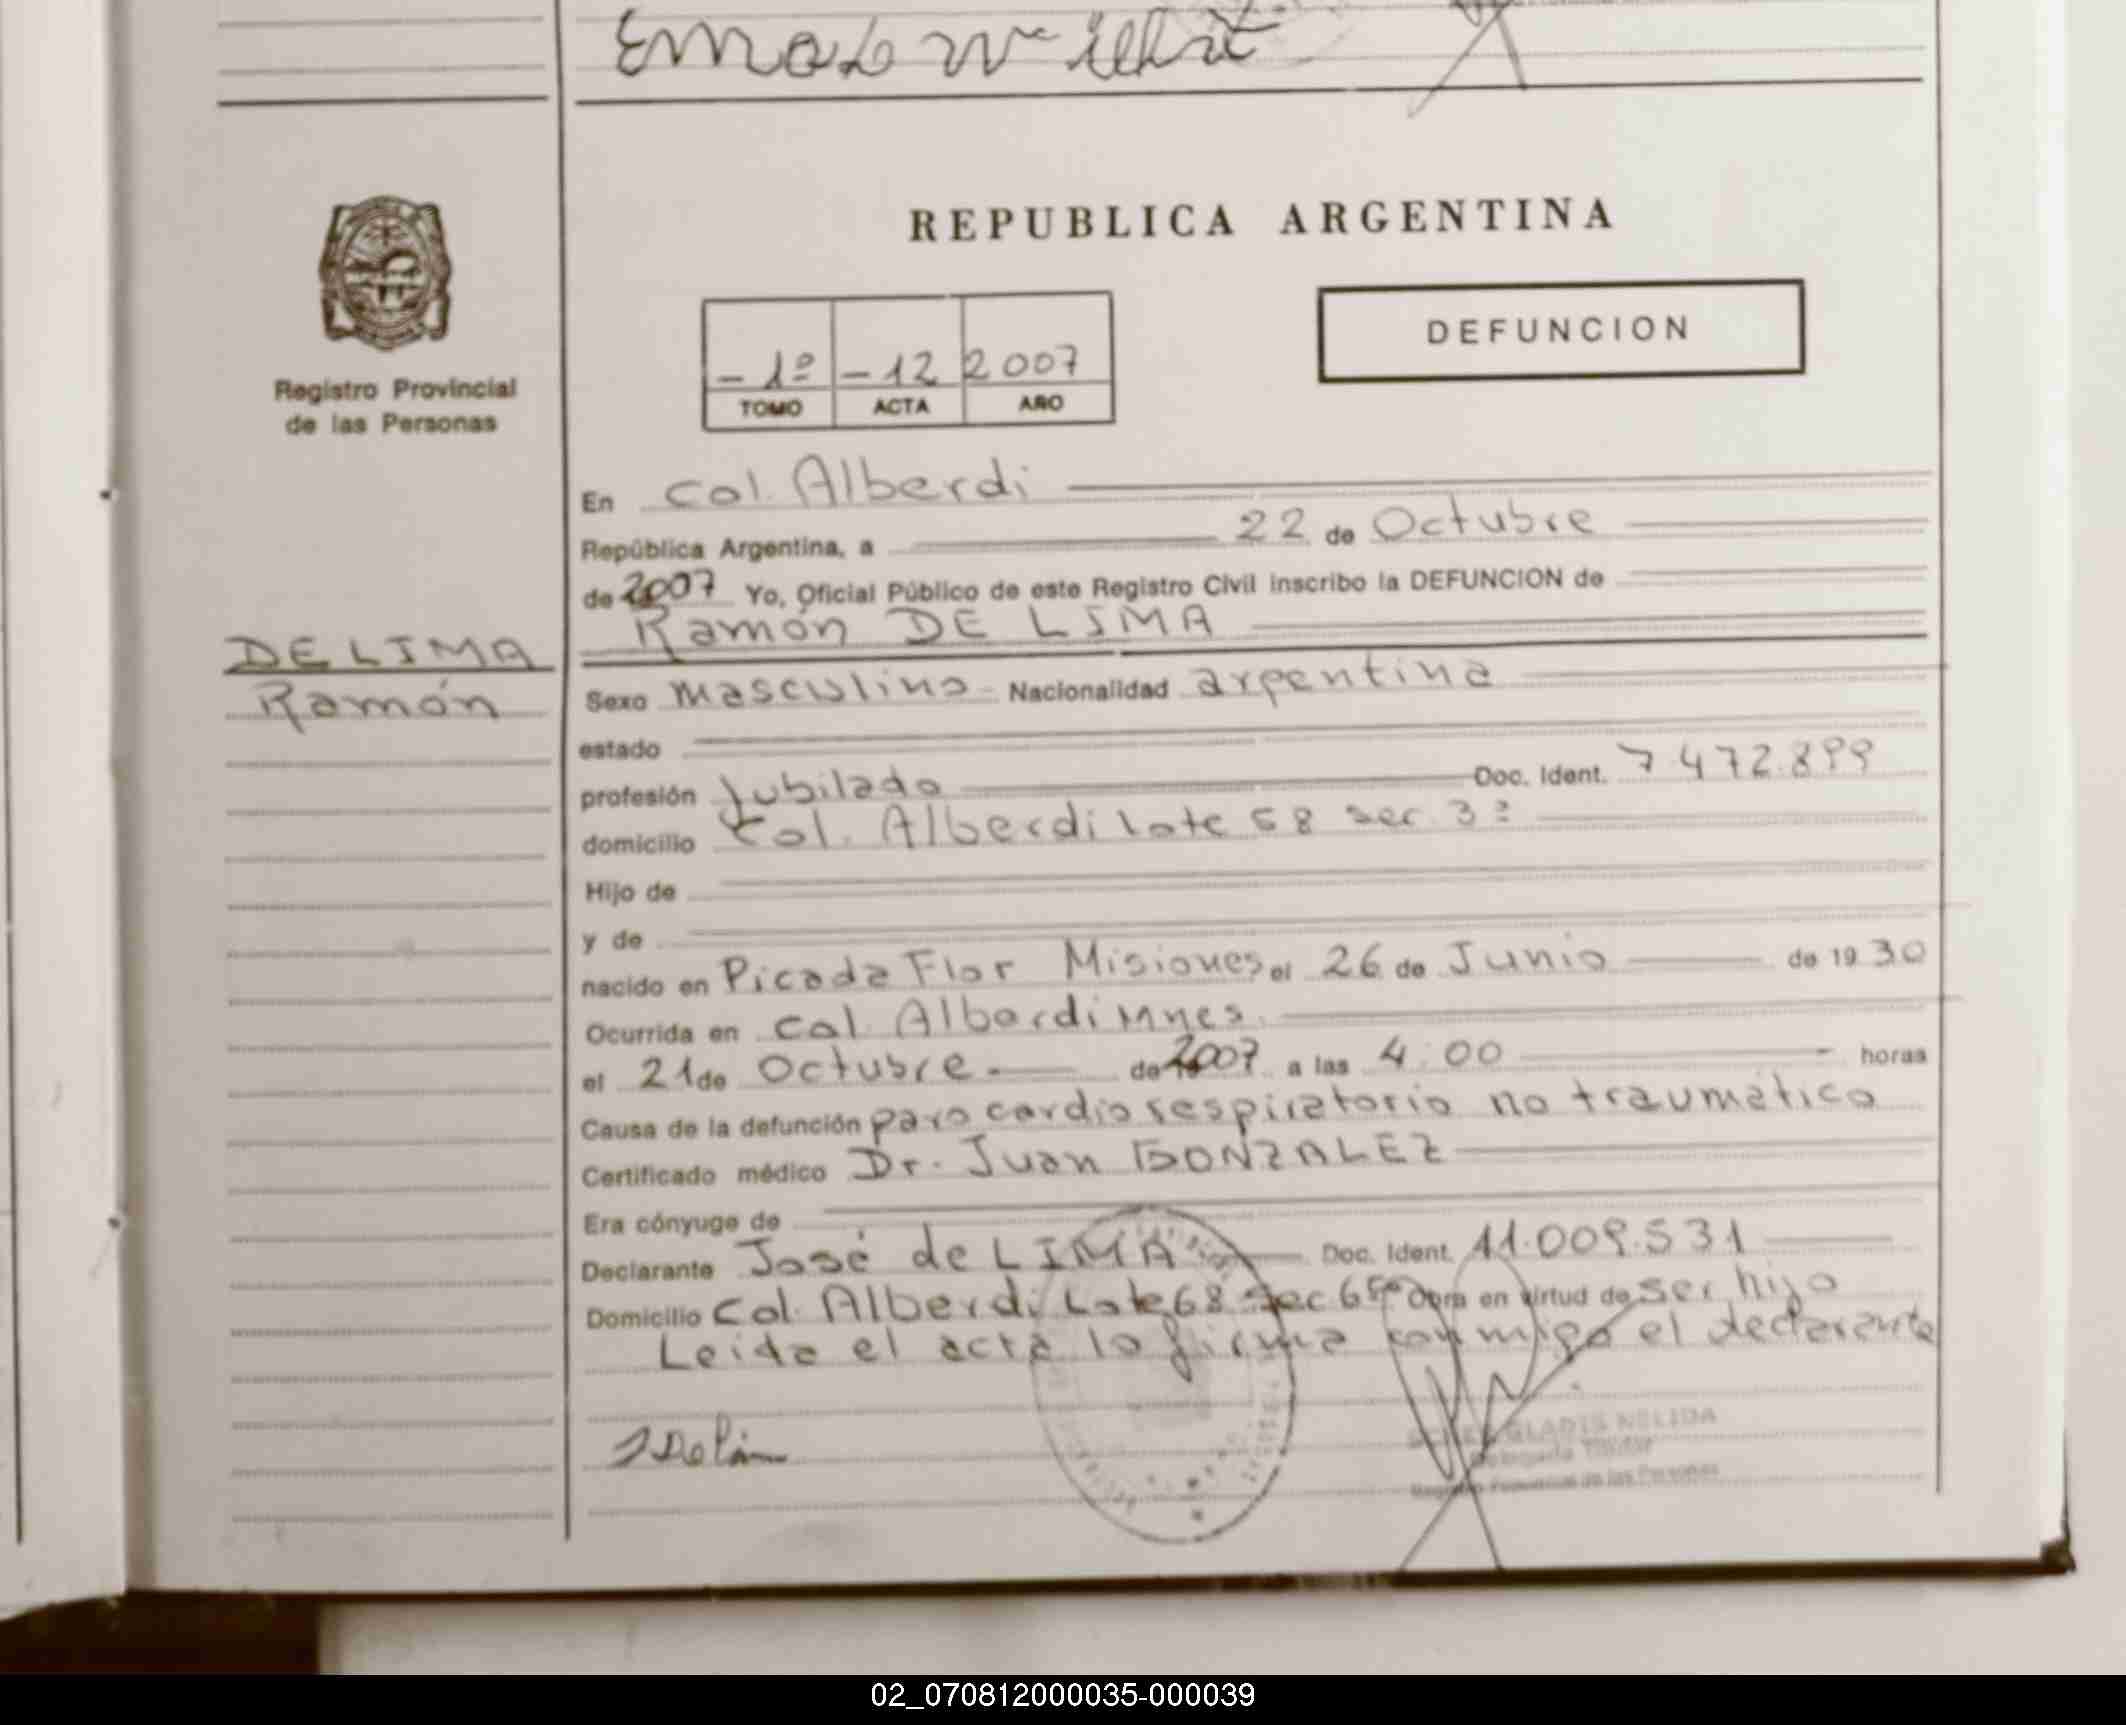 REPUBLICA ARGENTINA
DEFUNCION
- 1º - 12 2007
TOMO ACTA AÑO
Registro Provincial
de las Personas
En Col. Alberdi
República Argentina, a 22 de Octubre
de 2007 Yo, Oficial Público de este Registro Civil inscribo la DEFUNCION de
Ramón DE LIMA
DE LIMA
Ramón
Sexo masculino Nacionalidad argentina
estado
profesión Jubilado Doc. Ident. 7.472.899
domicilio Col. Alberdi Lote 68 sec. 3ª
Hijo de
y de
nacido en Picada Flor Misiones el 26 de Junio de 1930
Ocurrida en Col. Alberdi Mnes.
el 21 de Octubre de 2007 a las 4:00 horas
Causa de la defunción paro cardio respiratorio no traumático
Certificado médico Dr. Juan GONZALEZ
Era cónyuge de
Declarante José de LIMA Doc. Ident. 11.009.531
Domicilio Col. Alberdi Lote 68 Sec Obra en virtud de ser hijo
Leida el acta la firma conmigo el declarante
GLADIS NELIDA
Delegada Titular
Registro Provincial de las Personas
02_070812000035-000039